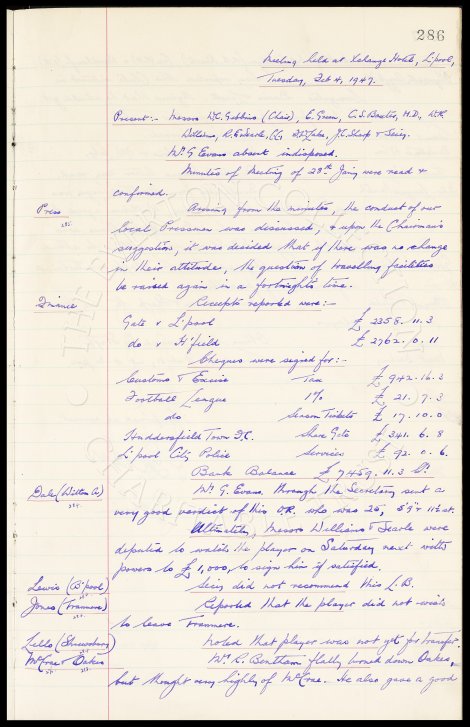 286
Meeting held at Xchange Hotel, L'pool,
Tuesday, Feb 4, 1947.
Present:- Messrs W.C. Gibbins (Chair), E. Green, C.S. Baxter, H.D., W.R.
Williams, R.E. Searle, J.C. Sharp & Secy.
Mr. G Evans absent indisposed.
Minutes of Meeting of 28th Jany were read &
confirmed.
Press
Arising from the minutes, the conduct of our
local Pressmen was discussed, & upon the Chairman's
suggestion, it was decided that if there was no change
in their attitudes, the question of travelling facilities
be raised again in a fortnights time.
Finance
Receipts reported were:-
Gate v L'pool £ 2358. 11. 3
do v H'field £ 2762. 0. 11
Cheques were signed for:-
Customs & Excise Tax £ 942. 16. 3
Football League 1% £ 21. 7. 3
do Season Tickets £ 17. 10. 0
Huddersfield Town F.C. Share Gate £ 341. 6. 8
L'pool City Police Services £ 92. 0. 6.
Bank Balance £ 7459. 11. 3
Dale (Witton A)
Mr. G. Evans, through the Secretary sent a
very good verdict of this O.R. who was 25, 5' 9" 11½ st.
Ultimately, Messrs Williams & Searle were
deputed to watch the player on Saturday next with
powers to £1,000, to sign him if satisfied.
Lewis (B'pool)
Secy did not recommend this L.B.
Jones (Tranmere)
Reported that the player did not wish
to leave Tranmere.
Lello (Shrewsbury)
Noted that player was not yet for transfer.
McCrae & Oakes
Mr. R. Bentham flatly turned down Oakes,
but thought very highly of McCrae. He also gave a good